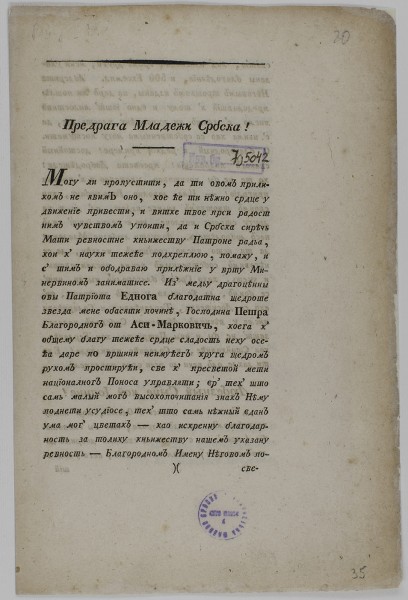 30
Предрага Младежи Србска!
Јо5042
Могу ли пропустити, да ти овомъ прили-
комъ не явимЪ оно, кое ће ти нѣжно срдце у
движеніе привести, и витке твое прси радост
нимъ чувствомъ упоити, да и Србска сирѣчь
Мати ревностне књижеству Патроне рађа,
кои к' науки тежеће подкреплюю, помажу, и
с' тимъ и ободраваю прилѣжніе у врту Ми-
нервиномъ заниматисе. Из' међу драгоцѣнны
овы Патріота Еднога благодатна щедроте
звезда мене обасяти починѣ, Господина Петра
Благородногъ от Аси-Марковичь, коега к'
общему благу тежеће срдце сладость неху осе-
ћа даре по вршини неимућегъ круга щедромъ
рукомъ простирући, све к' пресветой мети
націоналногъ Поноса управляти; ер' тек' што
самь малый могъ высокопочитанія знакъ Нѣму
поднети усудіосе, тек' што самь нѣжный вданъ
ума мог' цвѣтахъ — као искрену благодар-
ность за толику књижеству нашемъ указану
ревность — Благородномъ Имену Нѣговомъ по-
)( све-
35